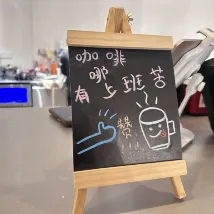 咖啡
哪
有上班苦